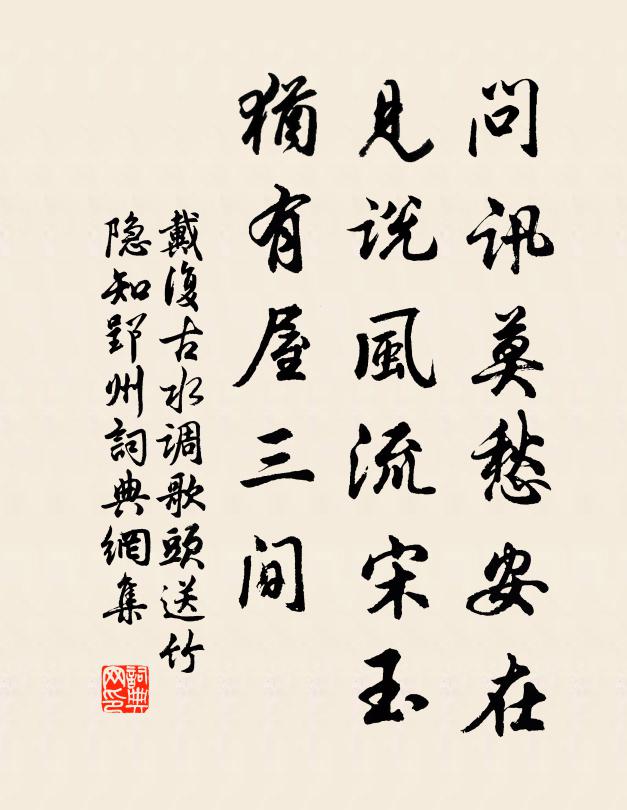 問訊莫愁安在
見説風流宋玉
猶有屋三间
戴復古水调歌頭送竹
隐知郢州詞典網集
詞典
网印